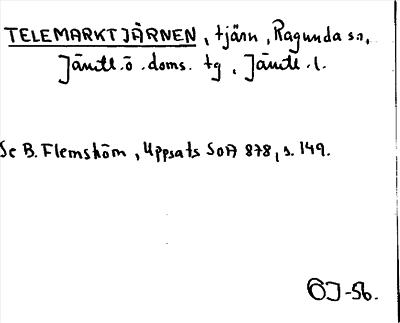 TELEMARKTJÄRNEN, tjärn, Ragunda sn,
Jämtl. ö. doms. tg, Jämtl. l.
Se B. Flemström, Uppsats SOA 878, s. 149.
ÖJ-56.